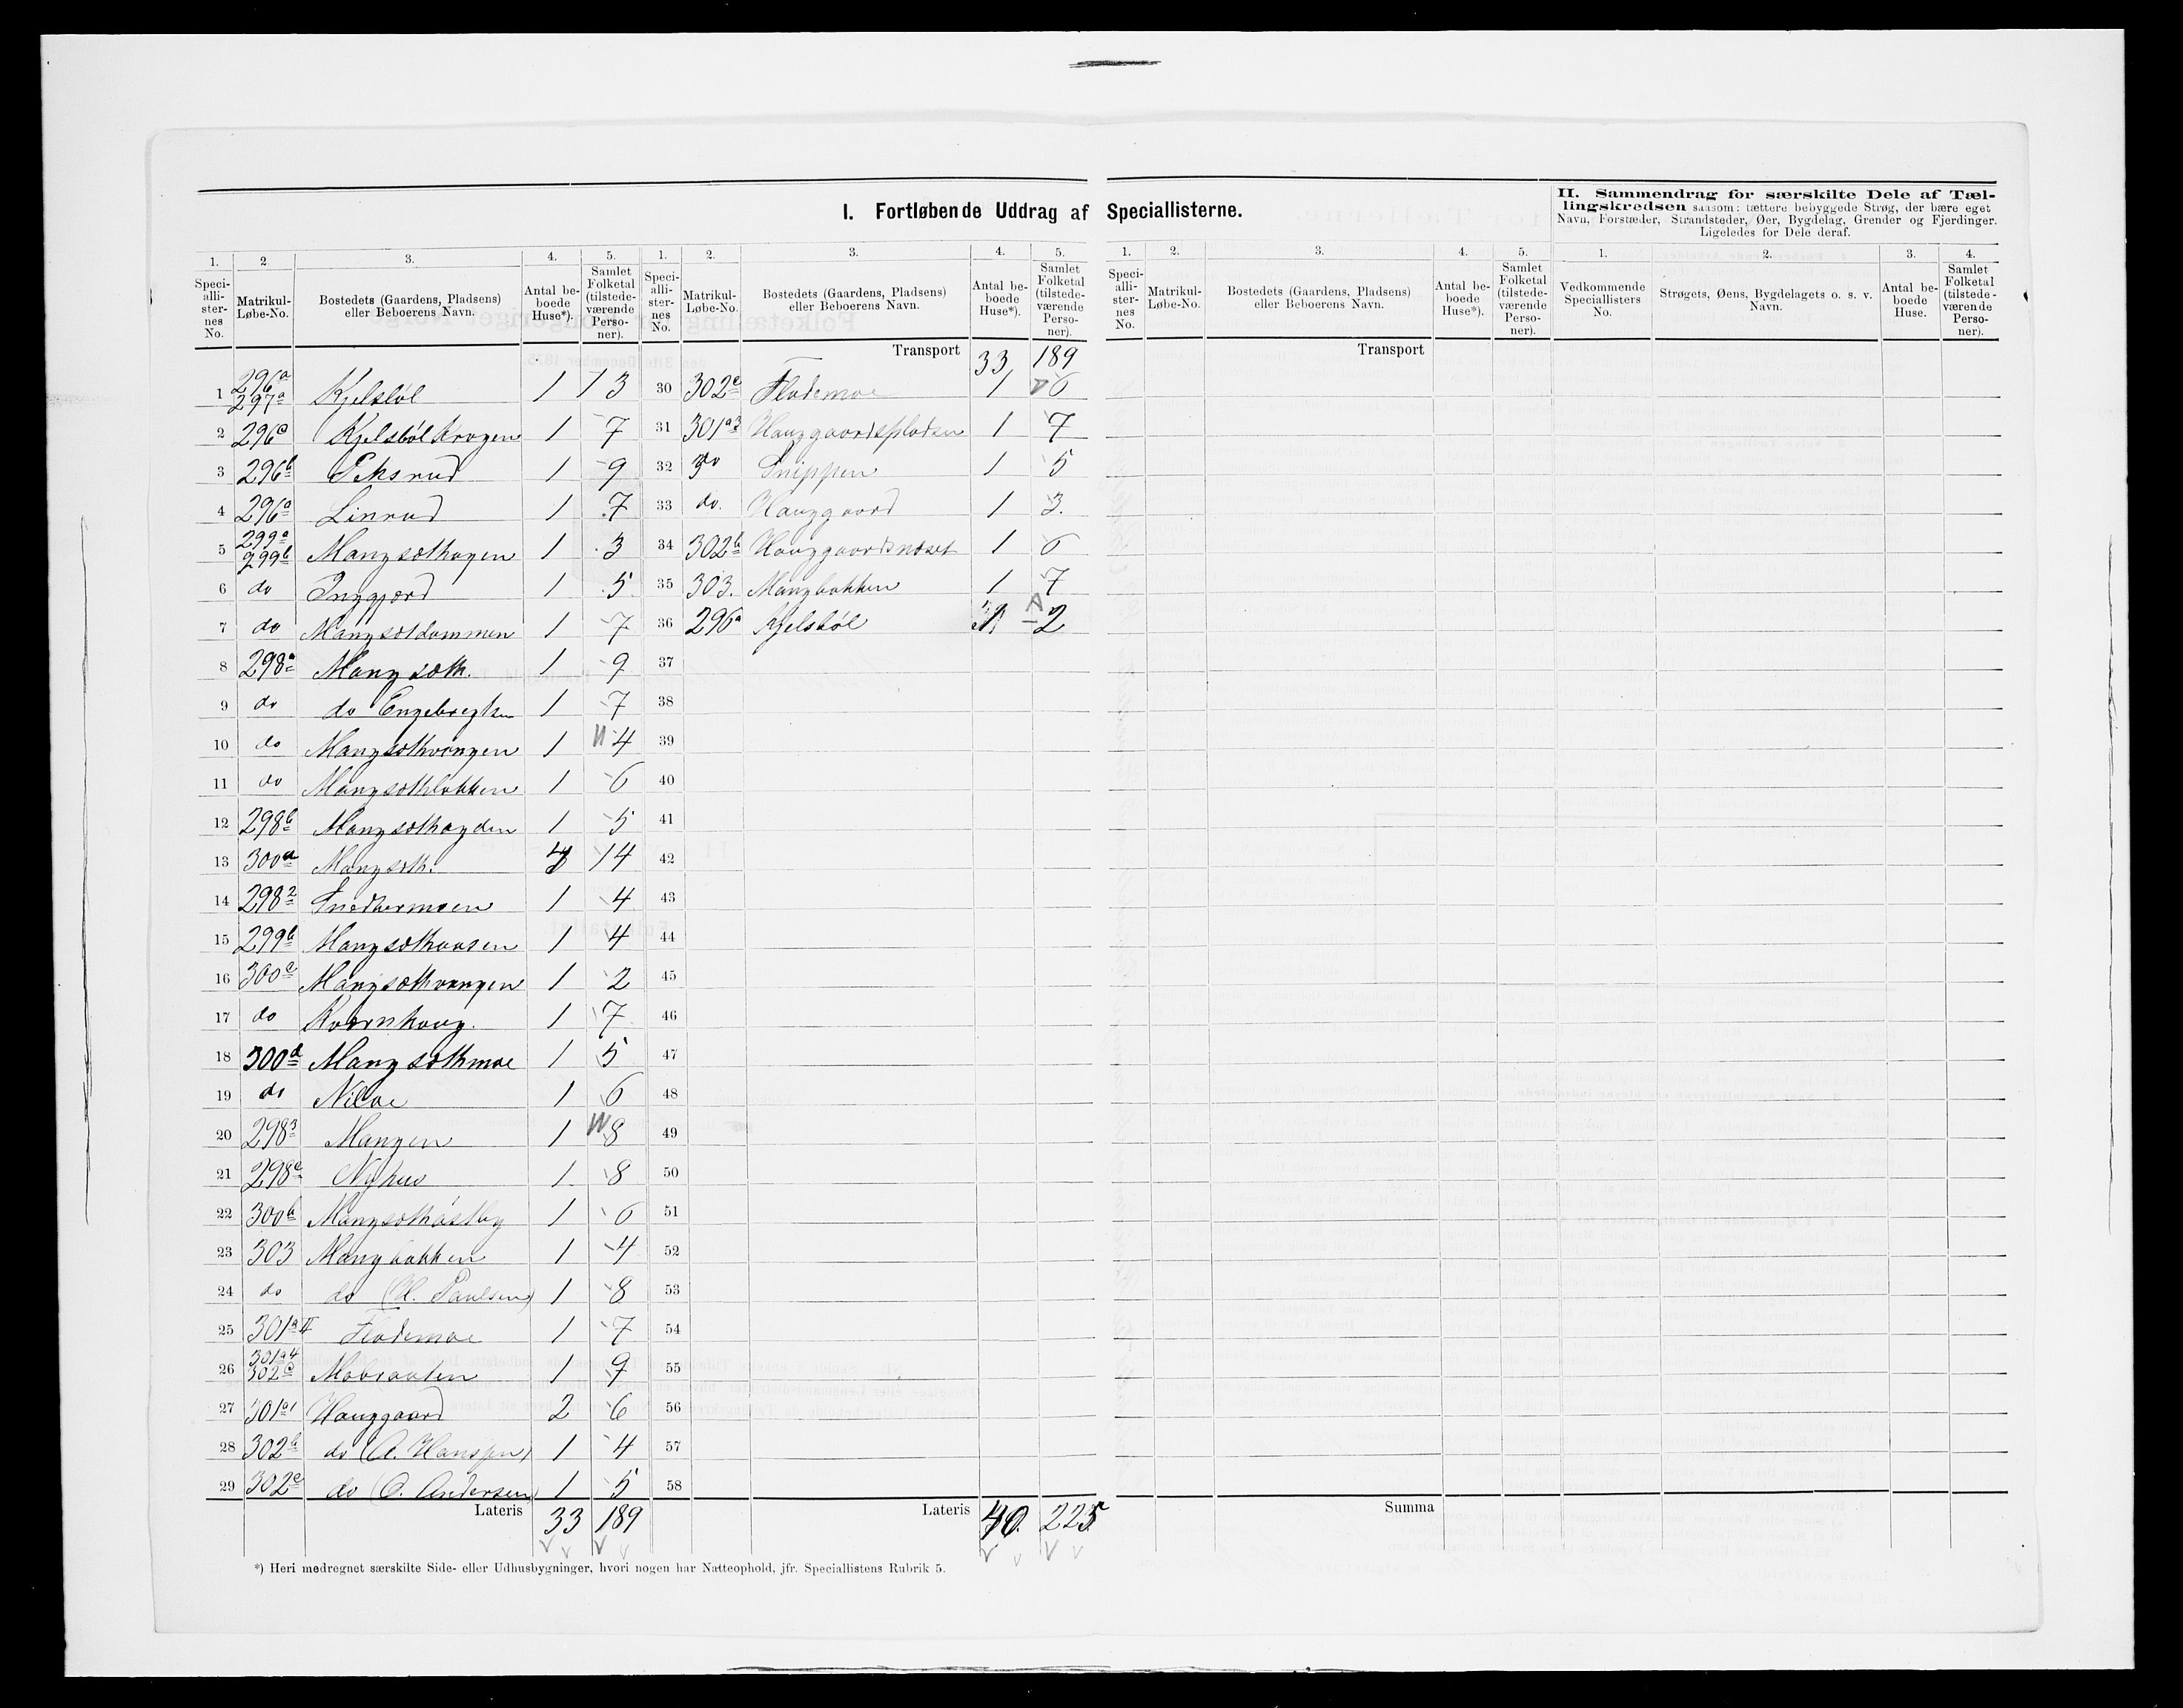 I. Fortløbende Uddrag af Speciallisterne.
II. Sammendrag for særskilte Dele af Tællingskredsen saasom: tættere bebyggede Strøg, der bære eget Navn, Forstæder, Strandsteder, Øer, Bygdelag, Grender og Fjerdinger. Ligeledes for Dele deraf.
1. 2. 3. 4. 5. 1. 2. 3. 4. 5. 1. 2. 3. 4. 5. 1. 2. 3. 4.
Speciallisternes No. Matrikul-Løbe-No. Bostedets (Gaardens, Pladsens) eller Beboerens Navn. Antal beboede Huse*). Samlet Folketal (tilstedeværende Personer).
Speciallisternes No. Matrikul-Løbe-No. Bostedets (Gaardens, Pladsens) eller Beboerens Navn. Antal beboede Huse*). Samlet Folketal (tilstedeværende Personer).
Speciallisternes No. Matrikul-Løbe-No. Bostedets (Gaardens, Pladsens) eller Beboerens Navn. Antal beboede Huse*). Samlet Folketal (tilstedeværende Personer).
Vedkommende Speciallisters No. Strøgets, Øens, Bygdelagets o. s. v. Navn. Antal beboede Huse. Samlet Folketal (tilstedeværende Personer).
1 296a 297a Kjelsböl 1 13
2 296c Kjelsbölkrogen 1 7
3 296b Peksrud 1 9
4 296a Linrud 1 7
5 299a 299b Mangsæthagen 1 3
6 do Inggjærd 1 5
7 do Mangsætdammen 1 7
8 298a Mangsæth. 1 9
9 do do Engebregtsen 1 7
10 do Mangsæthvangen 1 4
11 do Mangsæthbakken 1 6
12 298b Mangsæthøgden 1 5
13 300a Mangsæth. 4 14
14 298 2 Snedkermoen 1 4
15 299b Mangsæthaasen 1 4
16 300c Mangsæthvangen 1 2
17 do Kværnhaug. 1 7
18 300d Mangsæthmoe 1 5
19 do Niloe 1 6
20 298 3 Mangen 1 8
21 298c Nyhus 1 8
22 300b Mangsæthöstby 1 6
23 303 Mangbakken 1 4
24 do do (H. Paulsen) 1 8
25 301a II Flademoe 1 7
26 301a4 302c Mobraaten 1 9
27 301a1 Hauggaard 2 6
28 302b do (A. Hansen) 1 4
29 302e do (O. Andersen) 1 5
Lateris 33 189
Transport 33 189
30 302e Flademoe 1 6
31 301a3 Hauggaardspladsen 1 7
32 do Snippen 1 5
33 do. Hauggaard 1 3.
34 302b Hauggaardsnæset 1 6
35 303. Mangbakken 1 7
36 296a Kjelsböl 1 2
37
38
39
40
41
42
43
44
45
46
47
48
49
50
51
52
53
54
55
56
57
58
Lateris 40. 225
Transport
Summa
*) Heri medregnet særskilte Side- eller Udhusbygninger, hvori nogen har Natteophold, jfr. Speciallistens Rubrik 5.